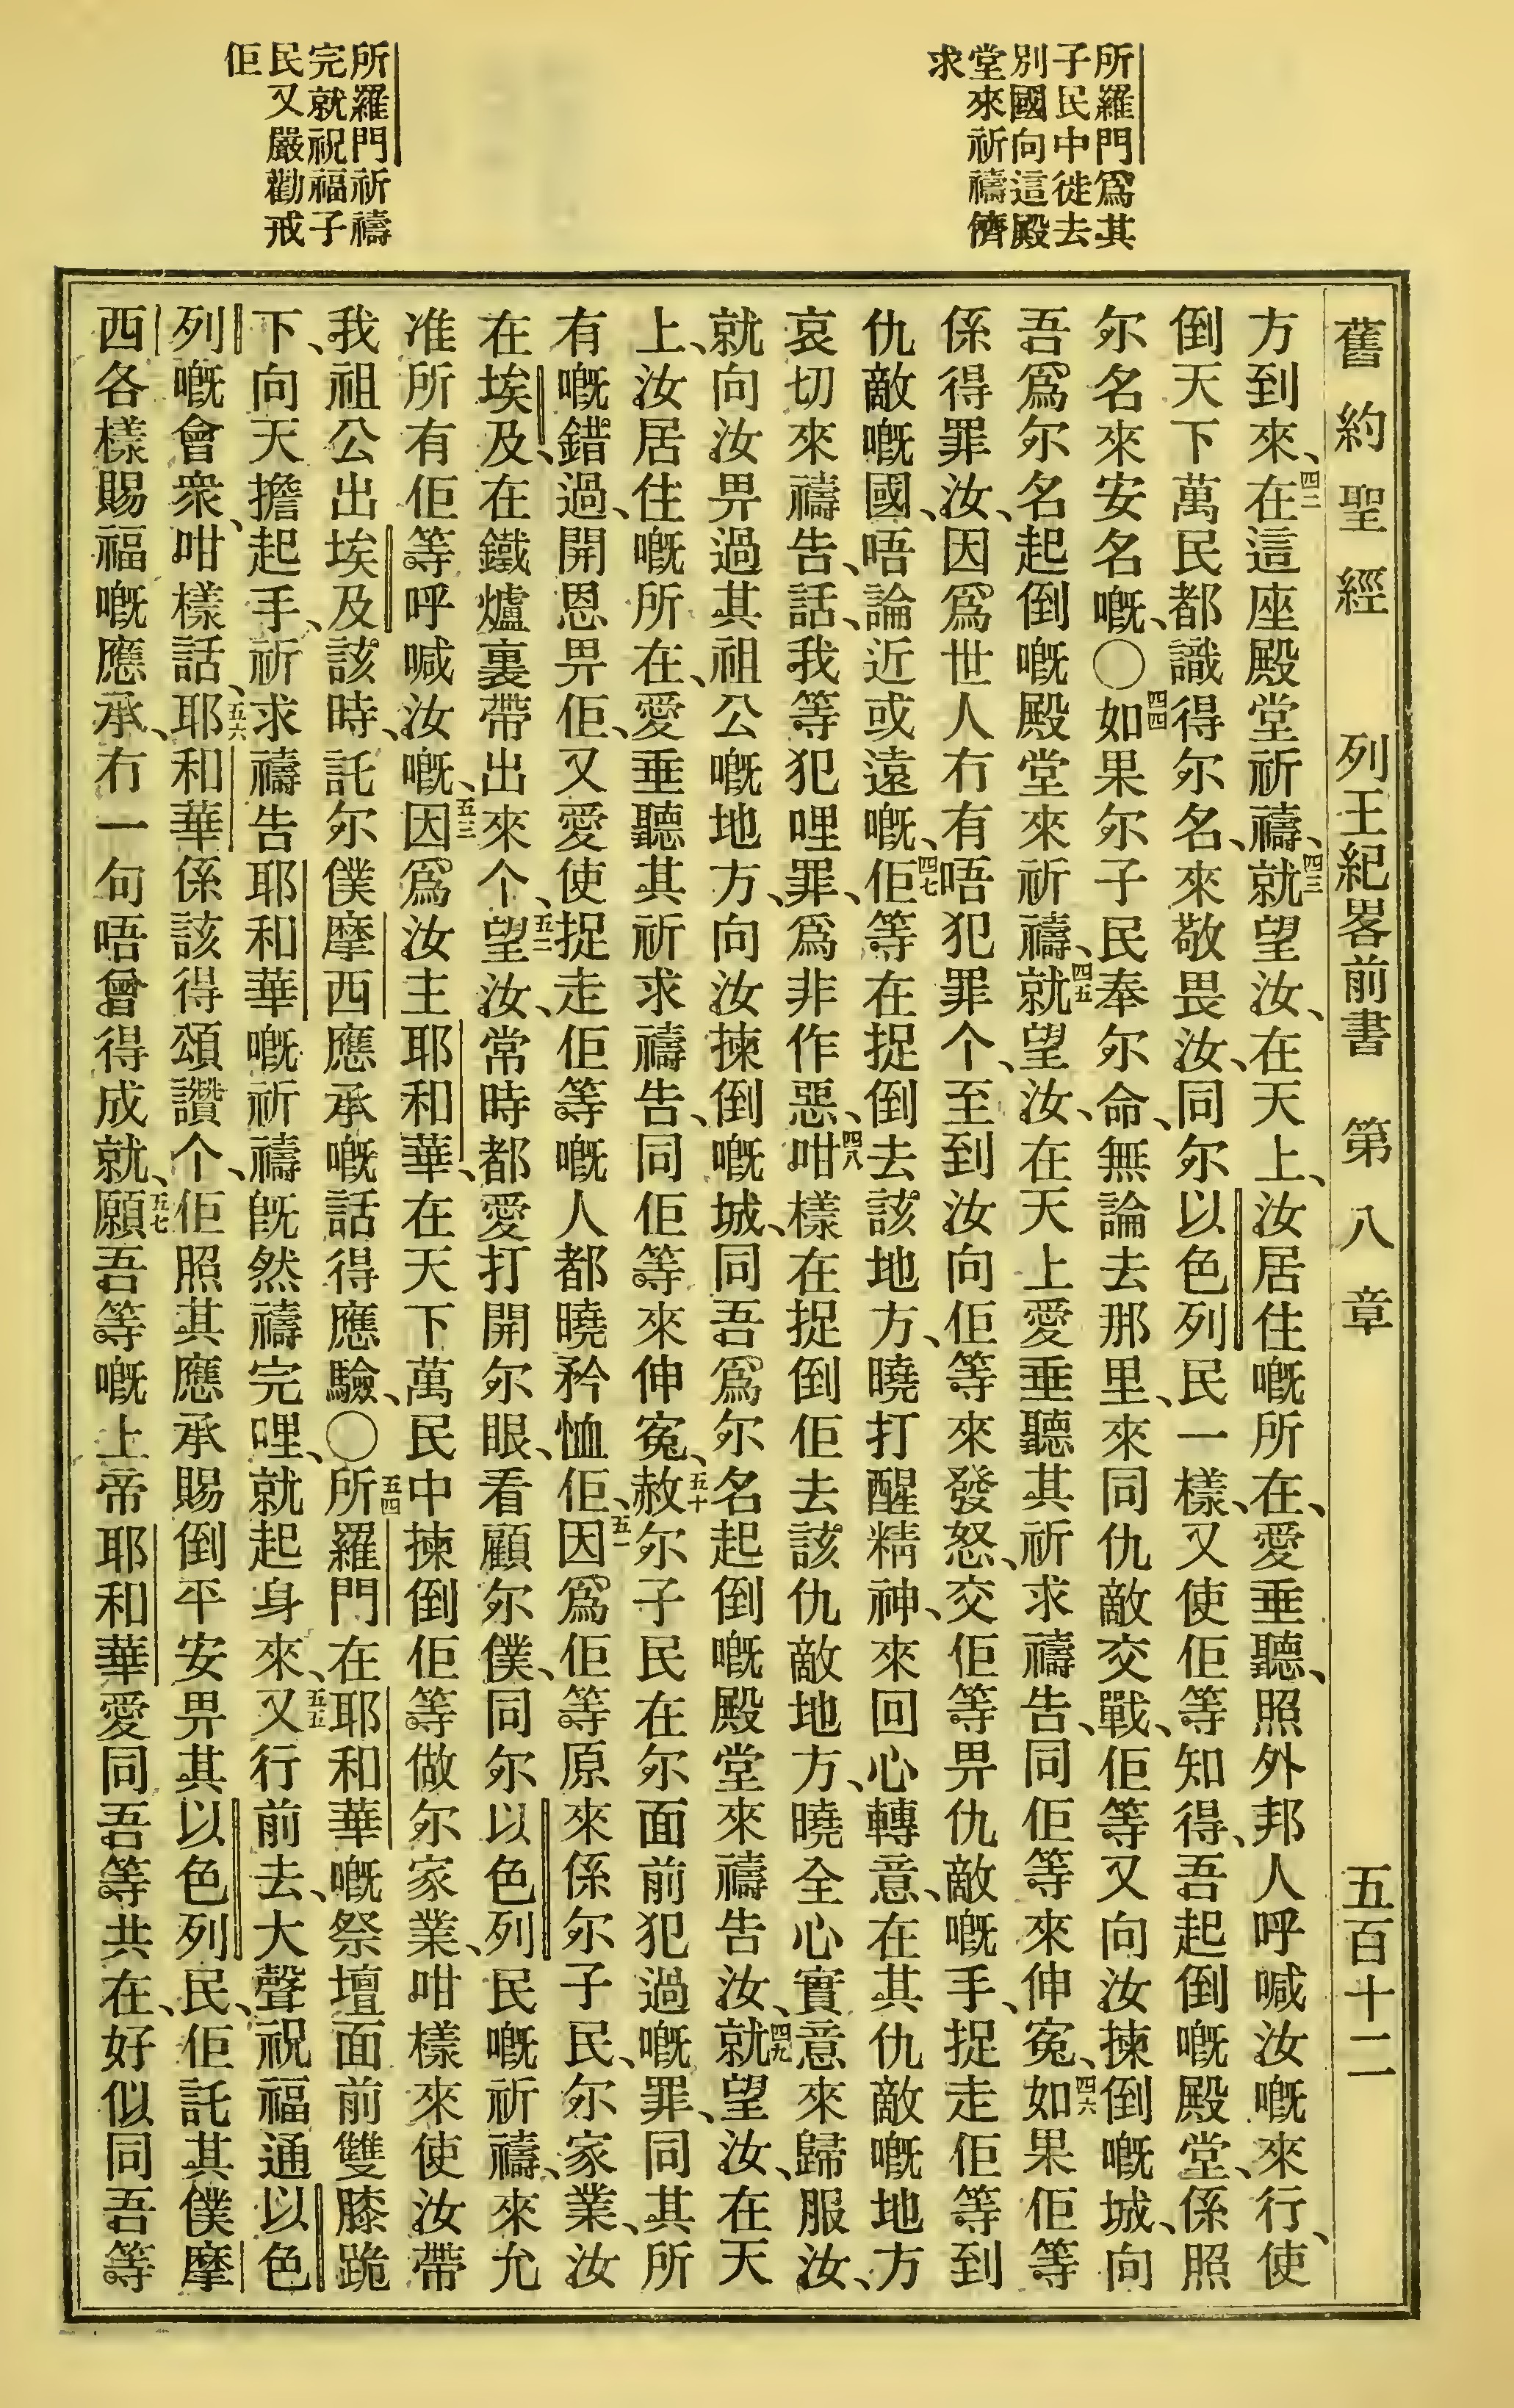 所羅門爲其
子民中徙去
別國向這殿
堂來祈禱儕
求
所羅門祈禱
完就祝福子
民又嚴勸戒
佢
舊約聖經 列王紀畧前書 第八章 五百十二
方到來、四二在這座殿堂祈禱、四三就望汝、在天上、汝居住嘅所在、愛垂聽、照外邦人呼喊汝嘅來行、使
倒天下萬民都識得尔名、來敬畏汝、同尔以色列民一樣、又使佢等知得、吾起倒嘅殿堂、係照
尔名來安名嘅、〇四四如果尔子民奉尔命、無論去那里、來同仇敵交戰、佢等又向汝揀倒嘅城、向
吾爲尔名起倒嘅殿堂來祈禱、四五就望汝、在天上愛垂聽其祈求禱告、同佢等來伸寃、四六如果佢等
係得罪汝、因爲世人冇有唔犯罪个、至到汝向佢等來發怒、交佢等畀仇敵嘅手、捉走佢等到
仇敵嘅國、唔論近或遠嘅、四七佢等在捉倒去該地方、曉打醒精神、來回心轉意、在其仇敵嘅地方
哀切來禱告、話、我等犯哩罪、爲非作惡、四八咁樣在捉倒佢去該仇敵地方、曉全心實意來歸服汝、
就向汝畀過其祖公嘅地方、向汝揀倒嘅城、同吾爲尔名起倒嘅殿堂來禱告汝、四九就望汝、在天
上、汝居住嘅所在、愛垂聽其祈求禱告、同佢等來伸寃、五十赦尔子民在尔面前犯過嘅罪、同其所
有嘅錯過、開恩畀佢、又愛使捉走佢等嘅人都曉矜恤佢、五一因爲佢等原來係尔子民、尔家業、汝
在埃及、在鐵爐裏帶出來个、五二望汝、常時都愛打開尔眼、看顧尔僕、同尔以色列民嘅祈禱、來允
准所有佢等呼喊汝嘅、五三因爲汝主耶和華、在天下萬民中揀倒佢等做尔家業、咁樣來使汝帶
我祖公出埃及該時、託尔僕摩西應承嘅話得應驗、〇五四所羅門在耶和華嘅祭壇面前雙膝跪
下、向天擔起手、祈求禱告耶和華嘅祈禱旣然禱完哩、就起身來、五五又行前去、大聲祝福通以色
列嘅會衆、咁樣話、五六耶和華係該得頌讚个、佢照其應承賜倒平安畀其以色列民、佢託其僕摩
西各樣賜福嘅應承、冇一句唔曾得成就、五七願吾等嘅上帝耶和華愛同吾等共在、好似同吾等